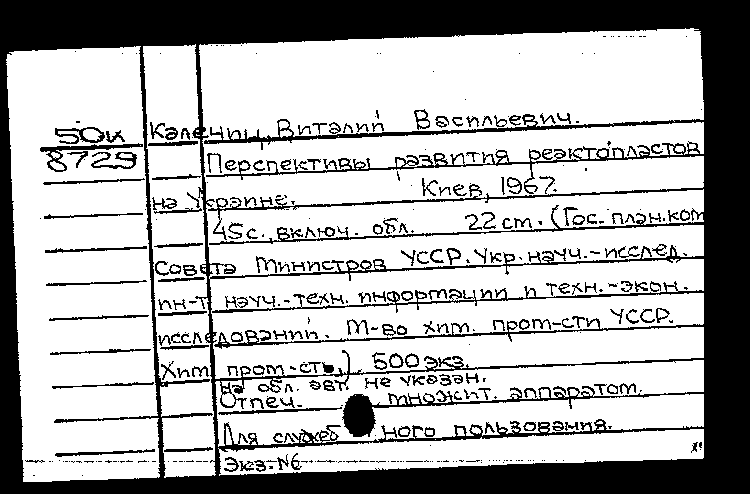 50к Каленич, Виталий Васильевич.
8729 Перспективы развития реактопластов
на Украине. Киев, 1967.
45с., включ. обл. 22 cm. (Гос. план. ком
Совета Министров УССР. Укр. науч.-исслед.
ин-т науч.-техн. информации и техн.-экон.
исследований. М-во хим. пром-сти УССР.
Хим. пром-сть.) 500 экз.
На обл. авт. не указан.
Отпеч. множит. аппаратом.
Для служебного пользования.
Экз. №6